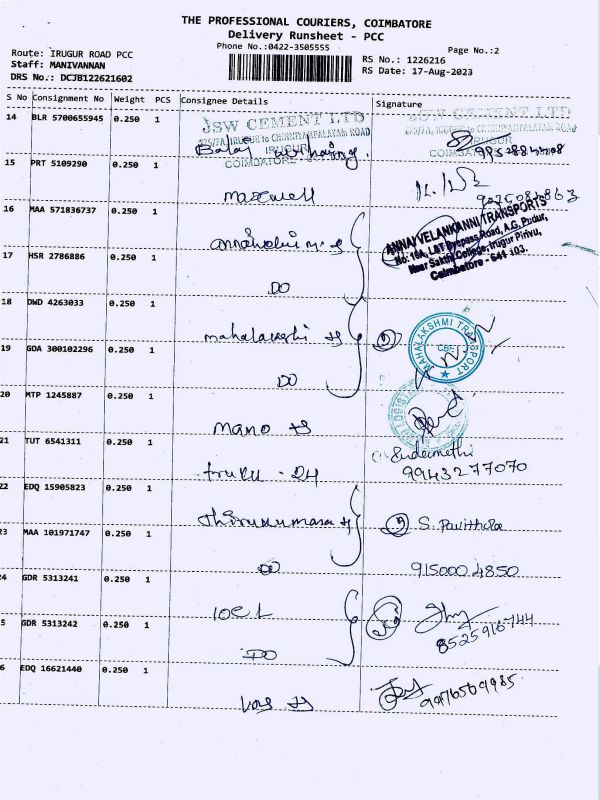 THE PROFESSIONAL COURIERS, COIMBATORE
Delivery Runsheet - PCC
Phone No.:0422-3505555
Page No.:2
Route: IRUGUR ROAD PCC
Staff: MANIVANNAN
DRS No.: DCJB122621602
RS No.: 1226216
RS Date: 17-Aug-2023
S No Consignment No Weight PCS Consignee Details Signature
14 BLR 5700655945 0.250 1
JSW CEMENT LTD
IRUGUR
COIMBATORE
JSW CEMENT LTD
15 PRT 5109290 0.250 1
maxwell
16 MAA 571836737 0.250 1
ANNAI VELANKANNI TRANSPORTS
No: 16A, L&T Byepass Road, A.G. Pudur,
Near Sakthi College, Irugur Pirivu,
Coimbatore - 641 103.
17 HSR 2786886 0.250 1
DO
18 DWD 4263033 0.250 1
MAHALAKSHMI TRANSPORT
CBE
19 GOA 300102296 0.250 1
DO
20 MTP 1245887 0.250 1
mano
21 TUT 6541311 0.250 1
9943277070
22 EDQ 15905823 0.250 1
S. Pavithra
23 MAA 101971747 0.250 1
DO
915000 4850
24 GDR 5313241 0.250 1
IOCL
8525916744
5 GDR 5313242 0.250 1
DO
6 EDQ 16621440 0.250 1
9976569985